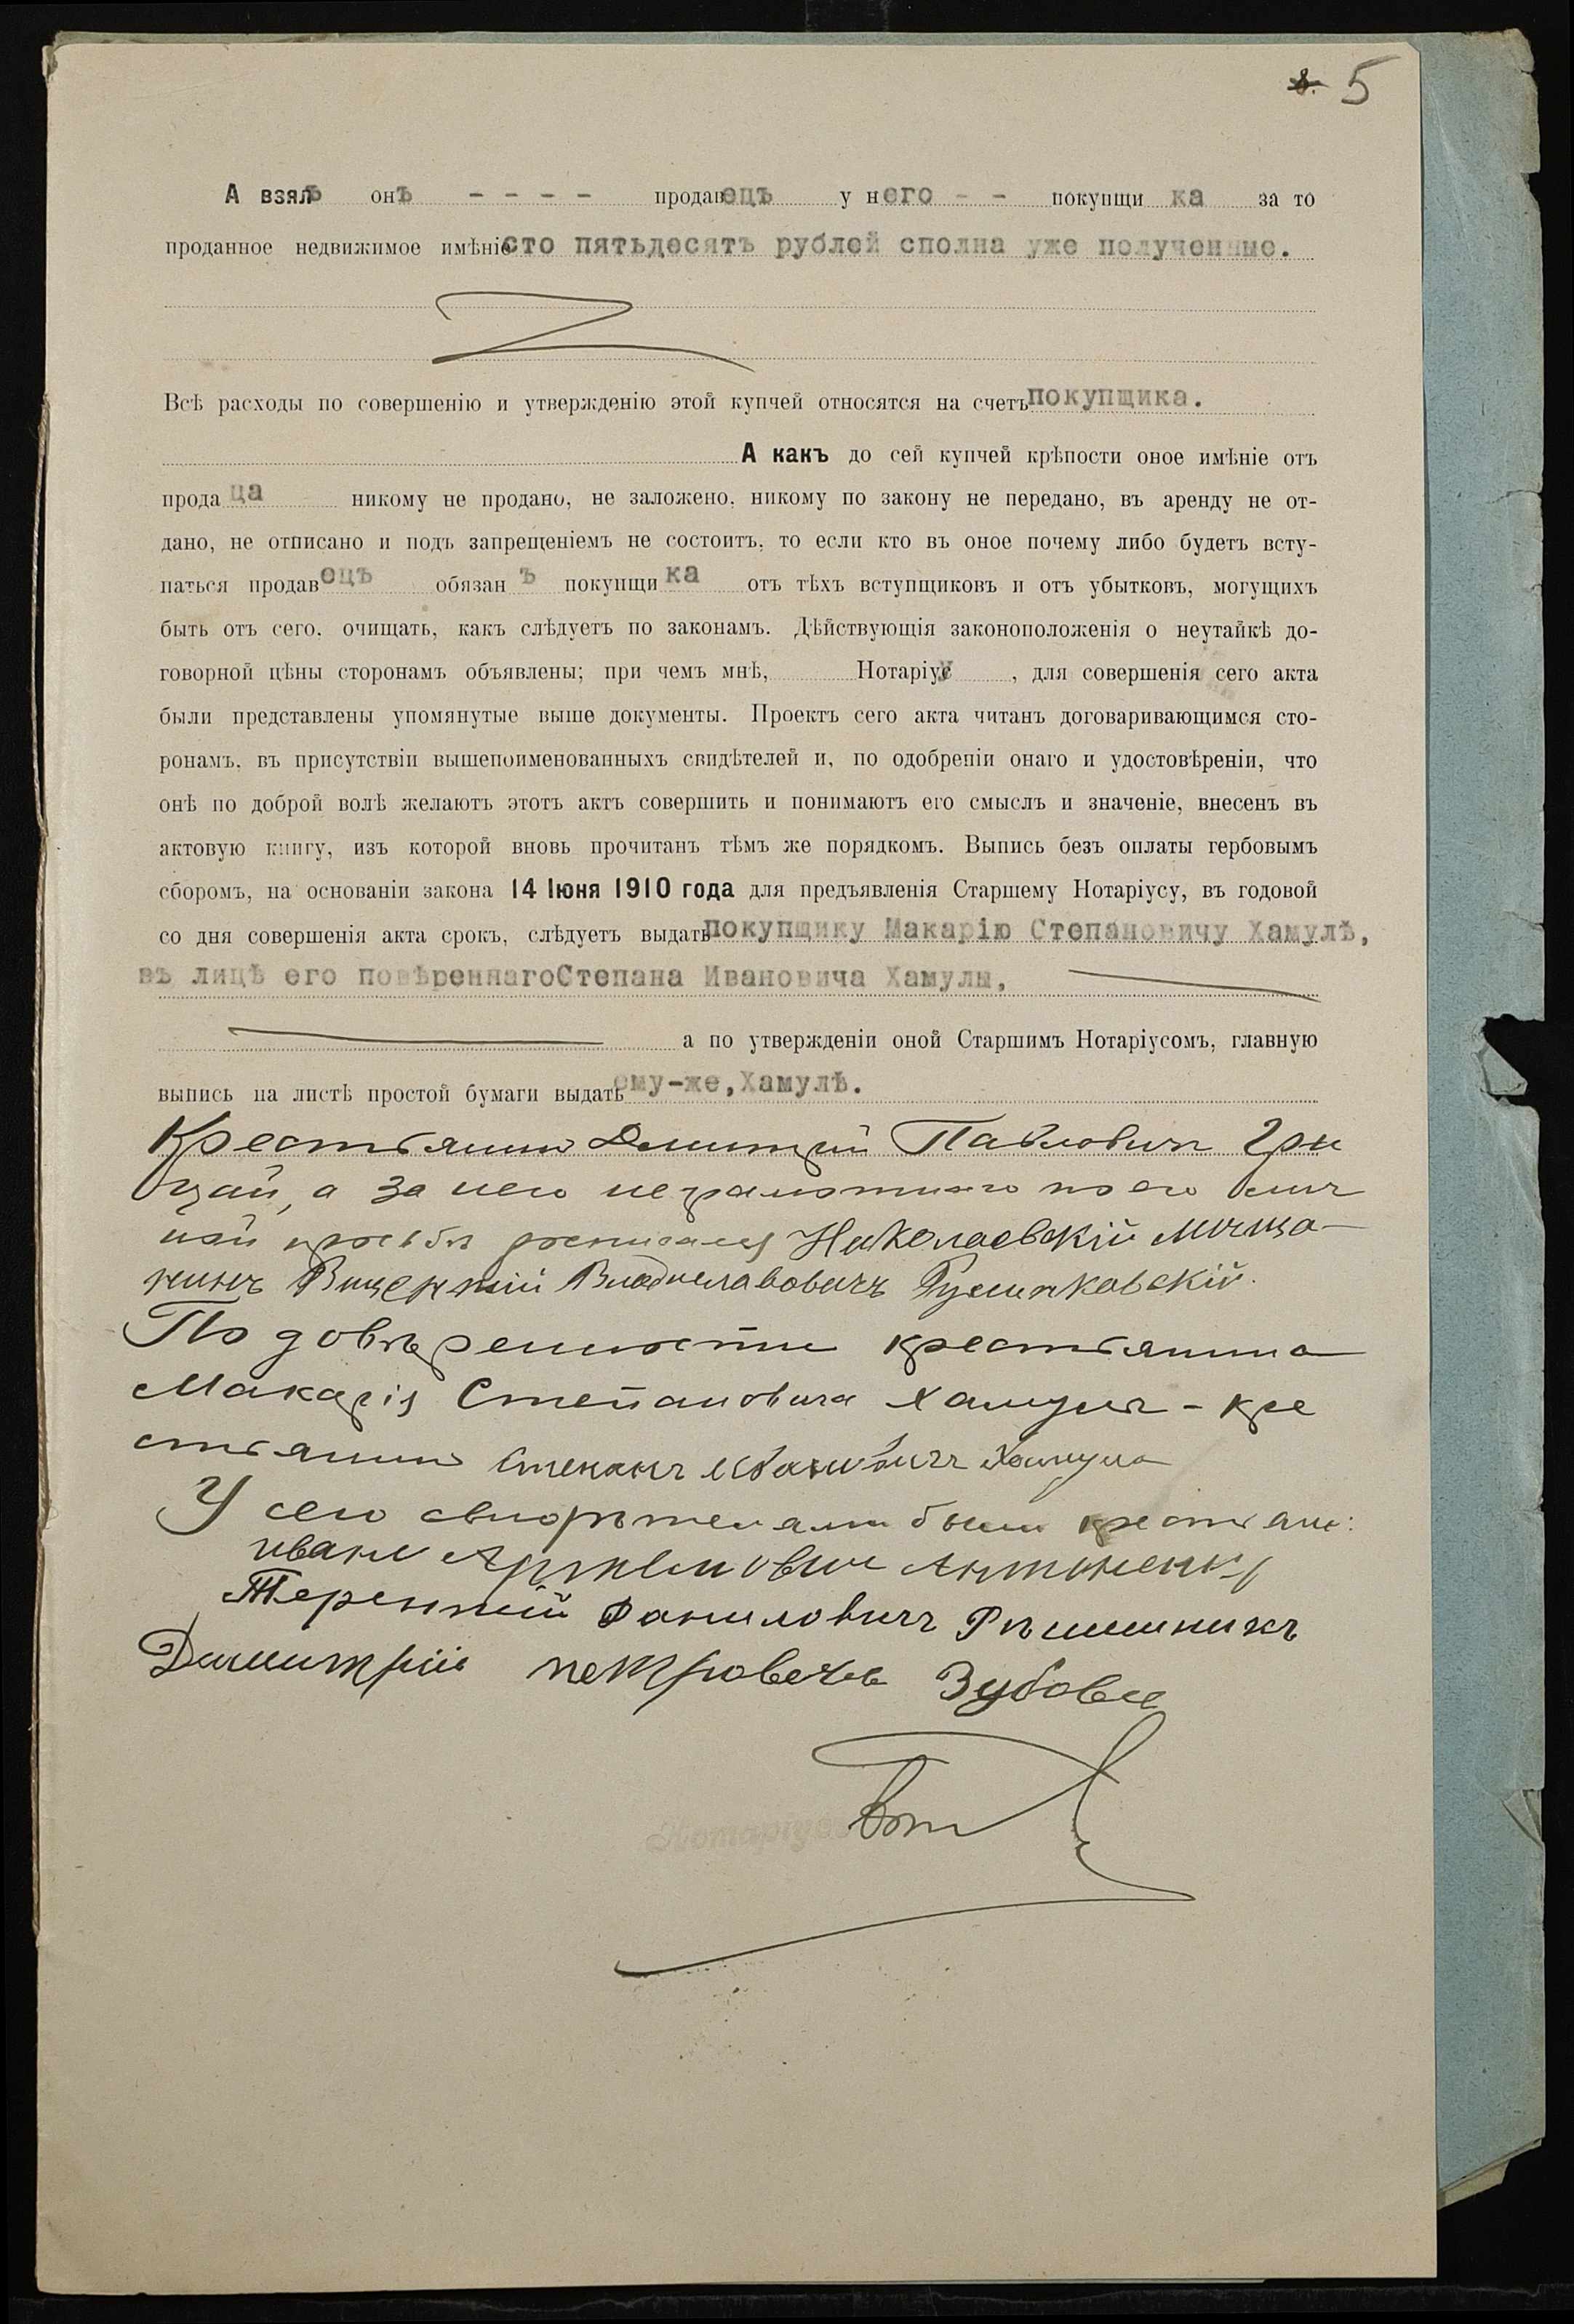 8. 5
А взялъ онъ - - - - продавецъ у него - - покупщи ка за то
проданное недвижимое имѣніе сто пятьдесятъ рублей сполна уже полученные.
Всѣ расходы по совершенію и утвержденію этой купчей относятся на счетъ покупщика.
А какъ до сей купчей крѣпости оное имѣніе отъ
прода ца никому не продано, не заложено, никому по закону не передано, въ аренду не от-
дано, не отписано и подъ запрещеніемъ не состоитъ, то если кто въ оное почему либо будетъ всту-
паться продавецъ обязан ъ покупщи ка отъ тѣхъ вступщиковъ и отъ убытковъ, могущихъ
быть отъ сего, очищать, какъ слѣдуетъ по законамъ. Дѣйствующія законоположенія о неутайкѣ до-
говорной цѣны сторонамъ объявлены; при чемъ мнѣ, Нотаріусу, для совершенія сего акта
были представлены упомянутые выше документы. Проектъ сего акта читанъ договаривающимся сто-
ронамъ, въ присутствіи вышепоименованныхъ свидѣтелей и, по одобреніи онаго и удостовѣреніи, что
онѣ по доброй волѣ желаютъ этотъ актъ совершить и понимаютъ его смыслъ и значеніе, внесенъ въ
актовую книгу, изъ которой вновь прочитанъ тѣмъ же порядкомъ. Выпись безъ оплаты гербовымъ
сборомъ, на основаніи закона 14 Іюня 1910 года для предъявленія Старшему Нотаріусу, въ годовой
со дня совершенія акта срокъ, слѣдуетъ выдать покупщику Макарію Степановичу Хамулѣ,
въ лицѣ его повѣреннагоСтепана Ивановича Хамулы,
а по утвержденіи оной Старшимъ Нотаріусомъ, главную
выпись на листѣ простой бумаги выдать ему-же,Хамулѣ.
Крестьянинъ Дмитрій Павловичъ Гри
цай, а за него неграмотнаго по его лич
ной просьбѣ росписался Николаевскій мѣща-
нинъ Вицентій Владиславовичъ
По довѣренности крестьянина
Макарія Степановича Хамулы - кре
стьянинъ Степанъ Ивановичъ Хамула
У сего свидѣтелями были крестьяне:
иванъ Артемовичъ Антоненко
Терентій Даниловичъ Рѣшетникъ
Димитрій петровечъ Зубовъ
Нотаріусъ